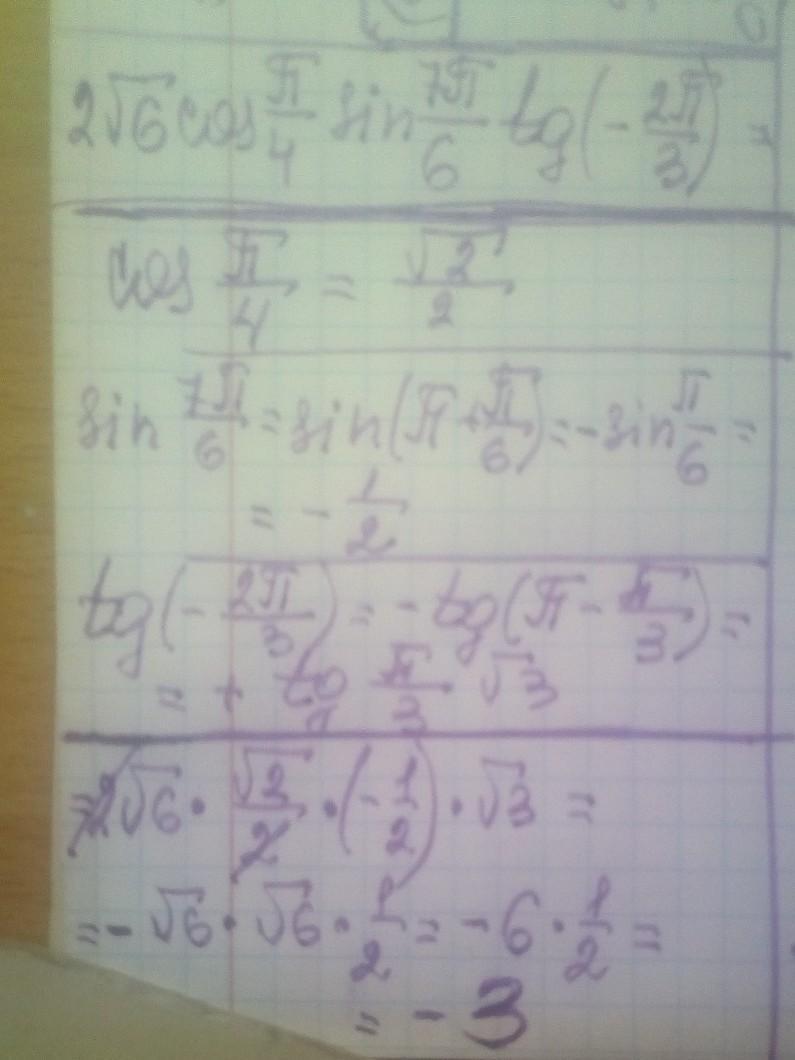 2√6 cos π/4 sin 7π/6 tg(-2π/3) =
cos π/4 = √2/2
sin 7π/6 = sin(π + π/6) = -sin π/6 =
= -1/2
tg(-2π/3) = -tg(π - π/3) =
= + tg π/3 √3
= 2√6 · √2/2 · (-1/2) · √3 =
= -√6 · √6 · 1/2 = -6 · 1/2 =
= -3